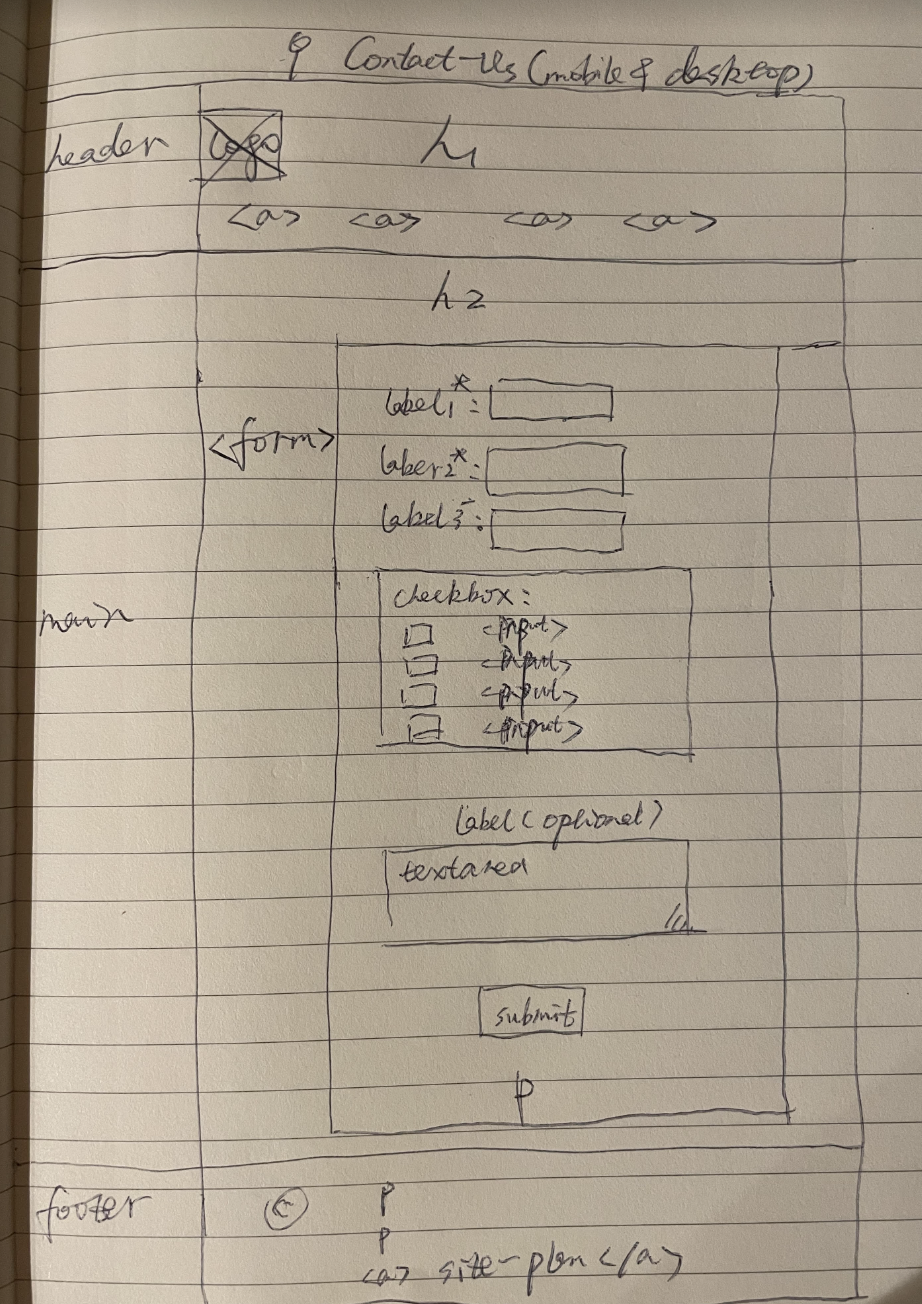 Contact-Us (mobile & desktop)
header
Logo
h1
<a> <a> <a> <a>
h2
<form>
label1*:
label2*:
label3:
main
checkbox:
<input>
<input>
<input>
<input>
label (optional)
textarea
submit
P
footer
© P
P
<a> site-plan </a>